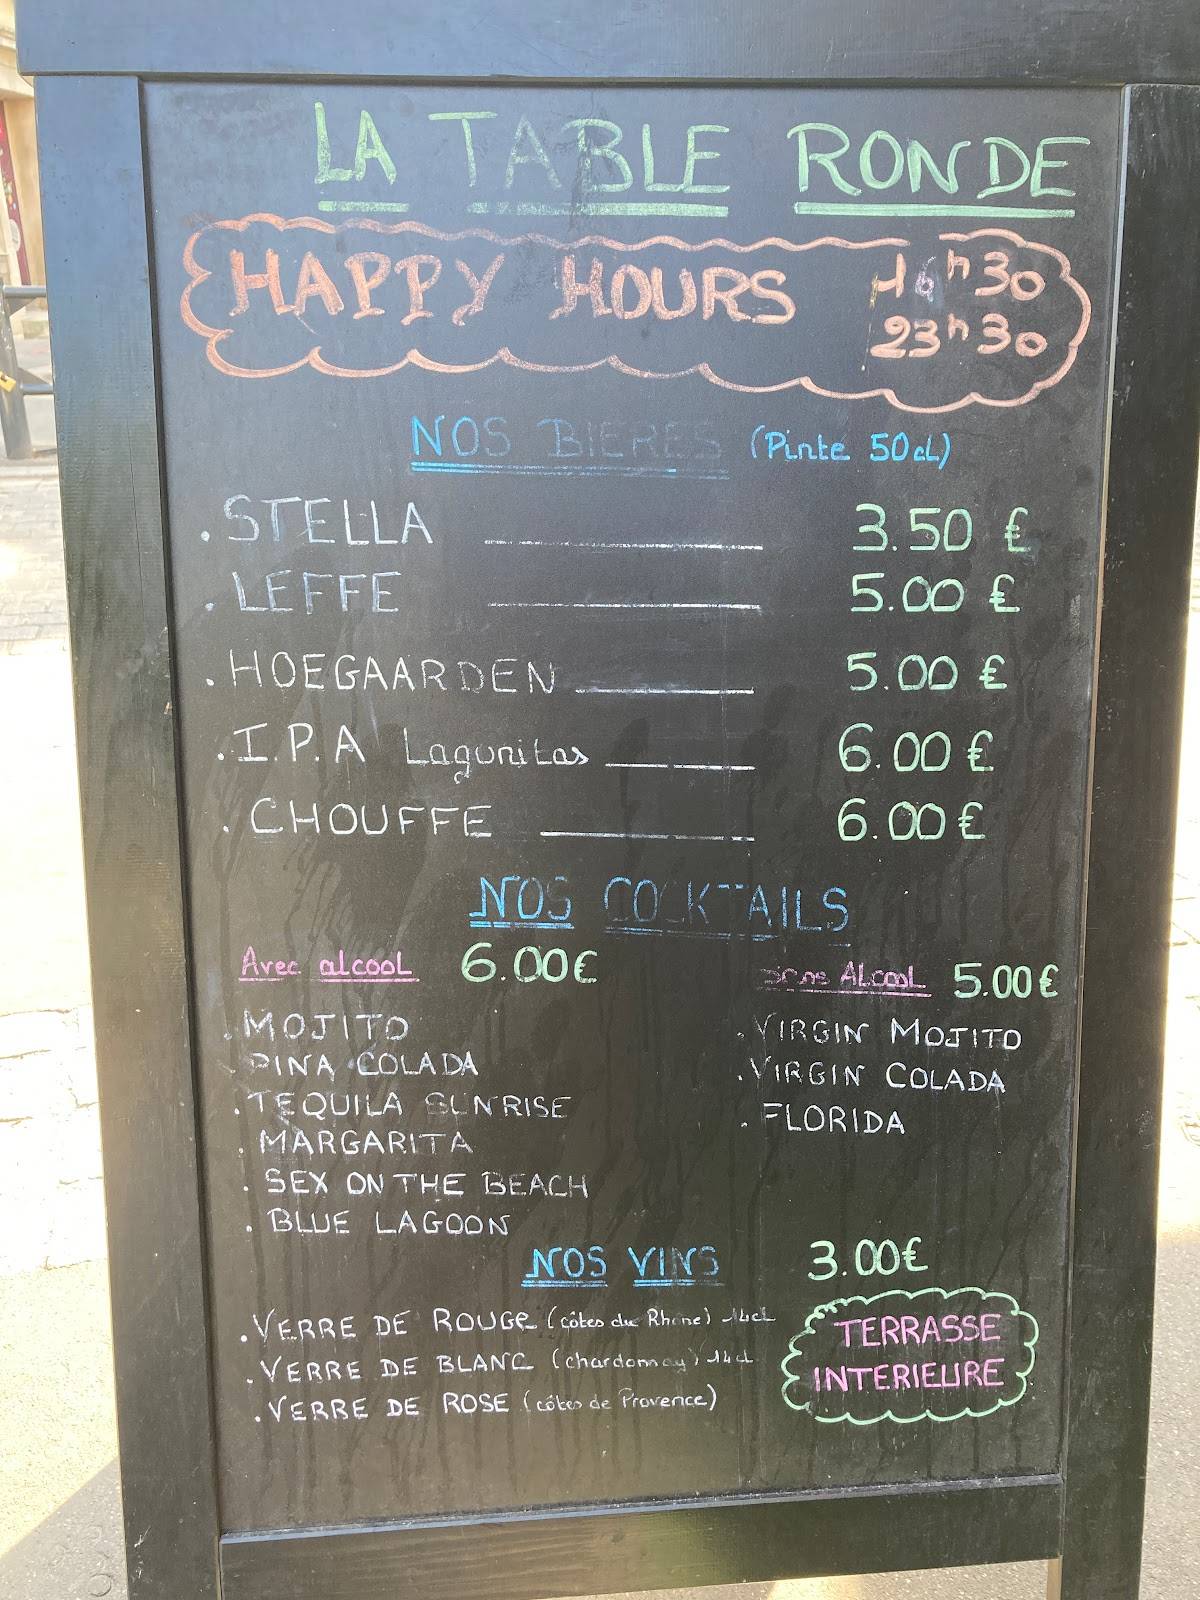 LA TABLE RONDE
HAPPY HOURS 16h30
23h30
NOS BIERES (Pinte 50cl)
. STELLA ____ 3.50 €
. LEFFE ____ 5.00 €
. HOEGAARDEN ____ 5.00 €
. I.P.A Lagunitas ____ 6.00 €
. CHOUFFE ____ 6.00 €
NOS COCKTAILS
Avec alcool 6.00€
. MOJITO
PINA COLADA
. TEQUILA SUNRISE
. MARGARITA
. SEX ON THE BEACH
. BLUE LAGOON
Sans Alcool 5.00€
. VIRGIN MOJITO
. VIRGIN COLADA
. FLORIDA
NOS VINS 3.00€
. VERRE DE ROUGE (côtes du Rhone) 14cl
. VERRE DE BLANC (chardonnay) 14cl
. VERRE DE ROSE (côtes de Provence)
TERRASSE
INTERIEURE